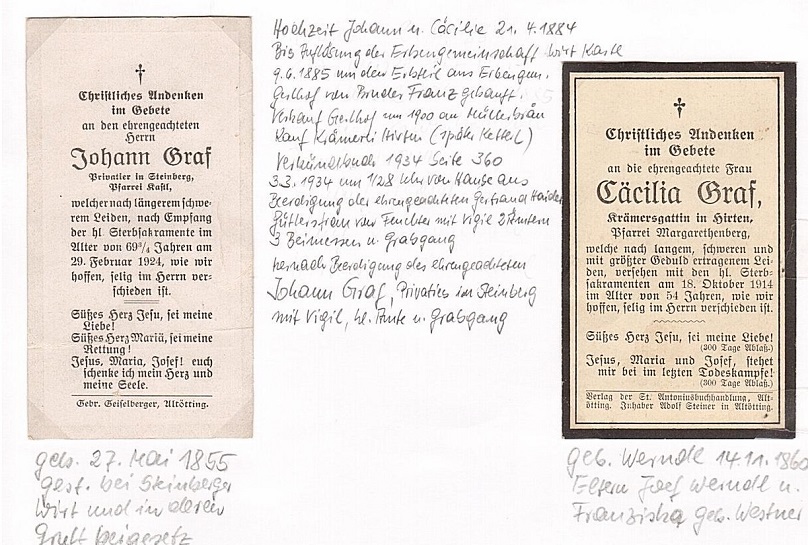 Christliches Andenken
im Gebete
an den ehrengeachteten
Herrn
Johann Graf
Privatier in Steinberg,
Pfarrei Kastl,
welcher nach längerem schwe-
rem Leiden, nach Empfang
der hl. Sterbsakramente im
Alter von 69¾ Jahren am
29. Februar 1924, wie wir
hoffen, selig im Herrn ver-
schieden ist.
Süßes Herz Jesu, sei meine
Liebe!
Süßes Herz Mariä, sei meine
Rettung!
Jesus, Maria, Josef! euch
schenke ich mein Herz und
meine Seele.
Gebr. Geiselberger, Altötting.
geb. 27. Mai 1855
gest. bei Steinberger
Wirt und in deren
Gruft beigesetz
Hochzeit Johann u. Cäcilie 21. 4. 1884
Bis Auflösung der Erbengemeinschaft Wirt Kastl
9.6.1885 um den Erbteil aus Erbengem.
Gasthof von Bruder Franz gekauft.
Verkauf Gasthof um 1900 an Müllerbräu
Kauf Krämerei Hirten (später Kettel)
Verkündbuch 1934 Seite 360
3.3. 1934 um 1/28 Uhr von Hause aus
Beerdigung der ehrengeachteten Gertraud Haider
Gütlersfrau von mit Vigil 2 Ämtern
3 Beimessen u. Grabgang
hernach Beerdigung des ehrengeachteten
Johann Graf, Privatier in Steinberg
mit Vigil, hl. Amte u. Grabgang
Christliches Andenken
im Gebete
an die ehrengeachtete Frau
Cäcilia Graf,
Krämersgattin in Hirten,
Pfarrei Margarethenberg,
welche nach langem, schweren und
mit größter Geduld ertragenem Lei-
den, versehen mit den hl. Sterb-
sakramenten am 18. Oktober 1914
im Alter von 54 Jahren, wie wir
hoffen, selig im Herrn verschieden ist.
Süßes Herz Jesu, sei meine Liebe!
(300 Tage Ablaß.)
Jesus, Maria und Josef, stehet
mir bei im letzten Todeskampfe!
(300 Tage Ablaß.)
Verlag der St. Antoniusbuchhandlung, Alt-
ötting. Inhaber Adolf Steiner in Altötting.
geb. Werndl 14.11. 1860
Eltern Josef Werndl u.
Franziska geb. Westner